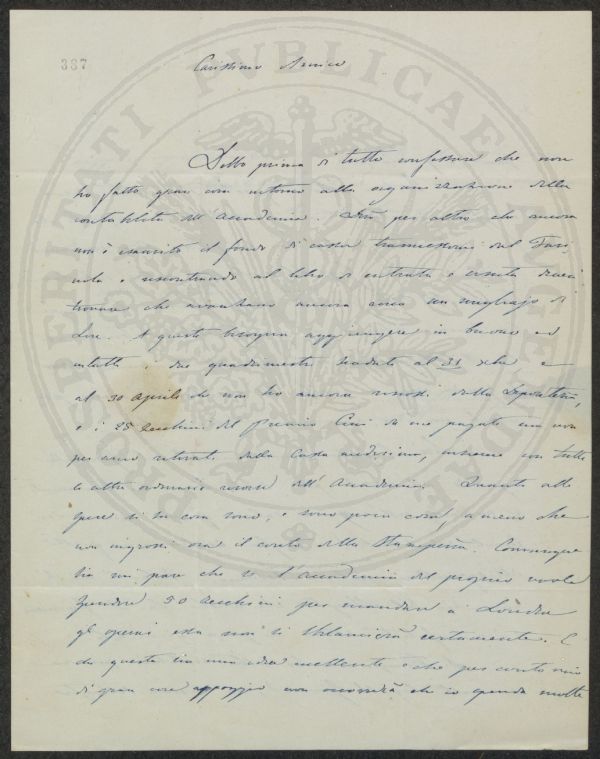 387
Carissimo Amico
Debbo prima di tutto confessare che non
ho fatto gran cosa intorno alla organizzazione della
contabilità dell'Accademia. Dirò per altro che ancora
non è esaurito il fondo di cassa trasmessomi dal
e riscontrando al libro di entrata e uscita
trovare che avanzano ancora circa un migliajo di
Lire. A queste bisogna aggiungere in buono ed
intatti i due quadrimestri scaduti al 31 xbre e
al 30 Aprile che non ho ancora riscossi dalla Depositeria,
e i 25 Zecchini del Premio da me pagati ma non
per anco ritirati dalla Cassa medesima, insieme con tutte
le altre ordinarie risorse dell'Accademia. Quanto alle
spese di tal cosa sono, e sono poca cosa, a meno che
non ingrossi ora il conto della Stamperia. Comunque
sia mi pare che se l'accademia del proprio vuole
spendere 50 Zecchini per mandare a Londra
gli operai essa non si sbilancierà certamente. E
da questa sia una idea eccellente e che per conto mio
di gran cuore appoggio non occorrerà che io spenda molte
PROSPERITATI PUBLICAE AUGENDAE